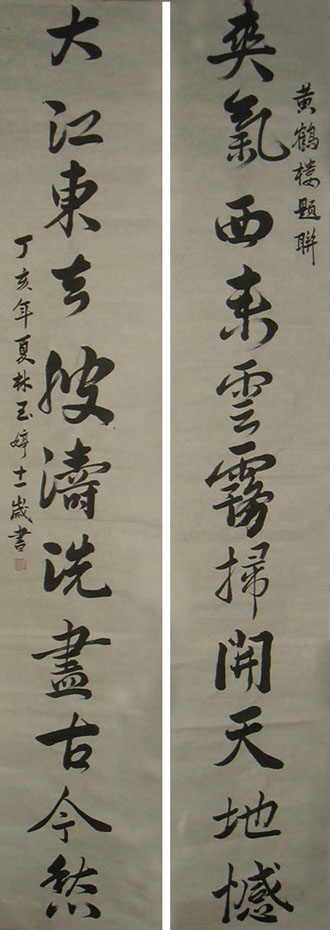 黄鶴樓題聯
爽氣西来雲霧掃開天地憾
大江東去波濤洗盡古今愁
丁亥年夏林玉婷十一歲書